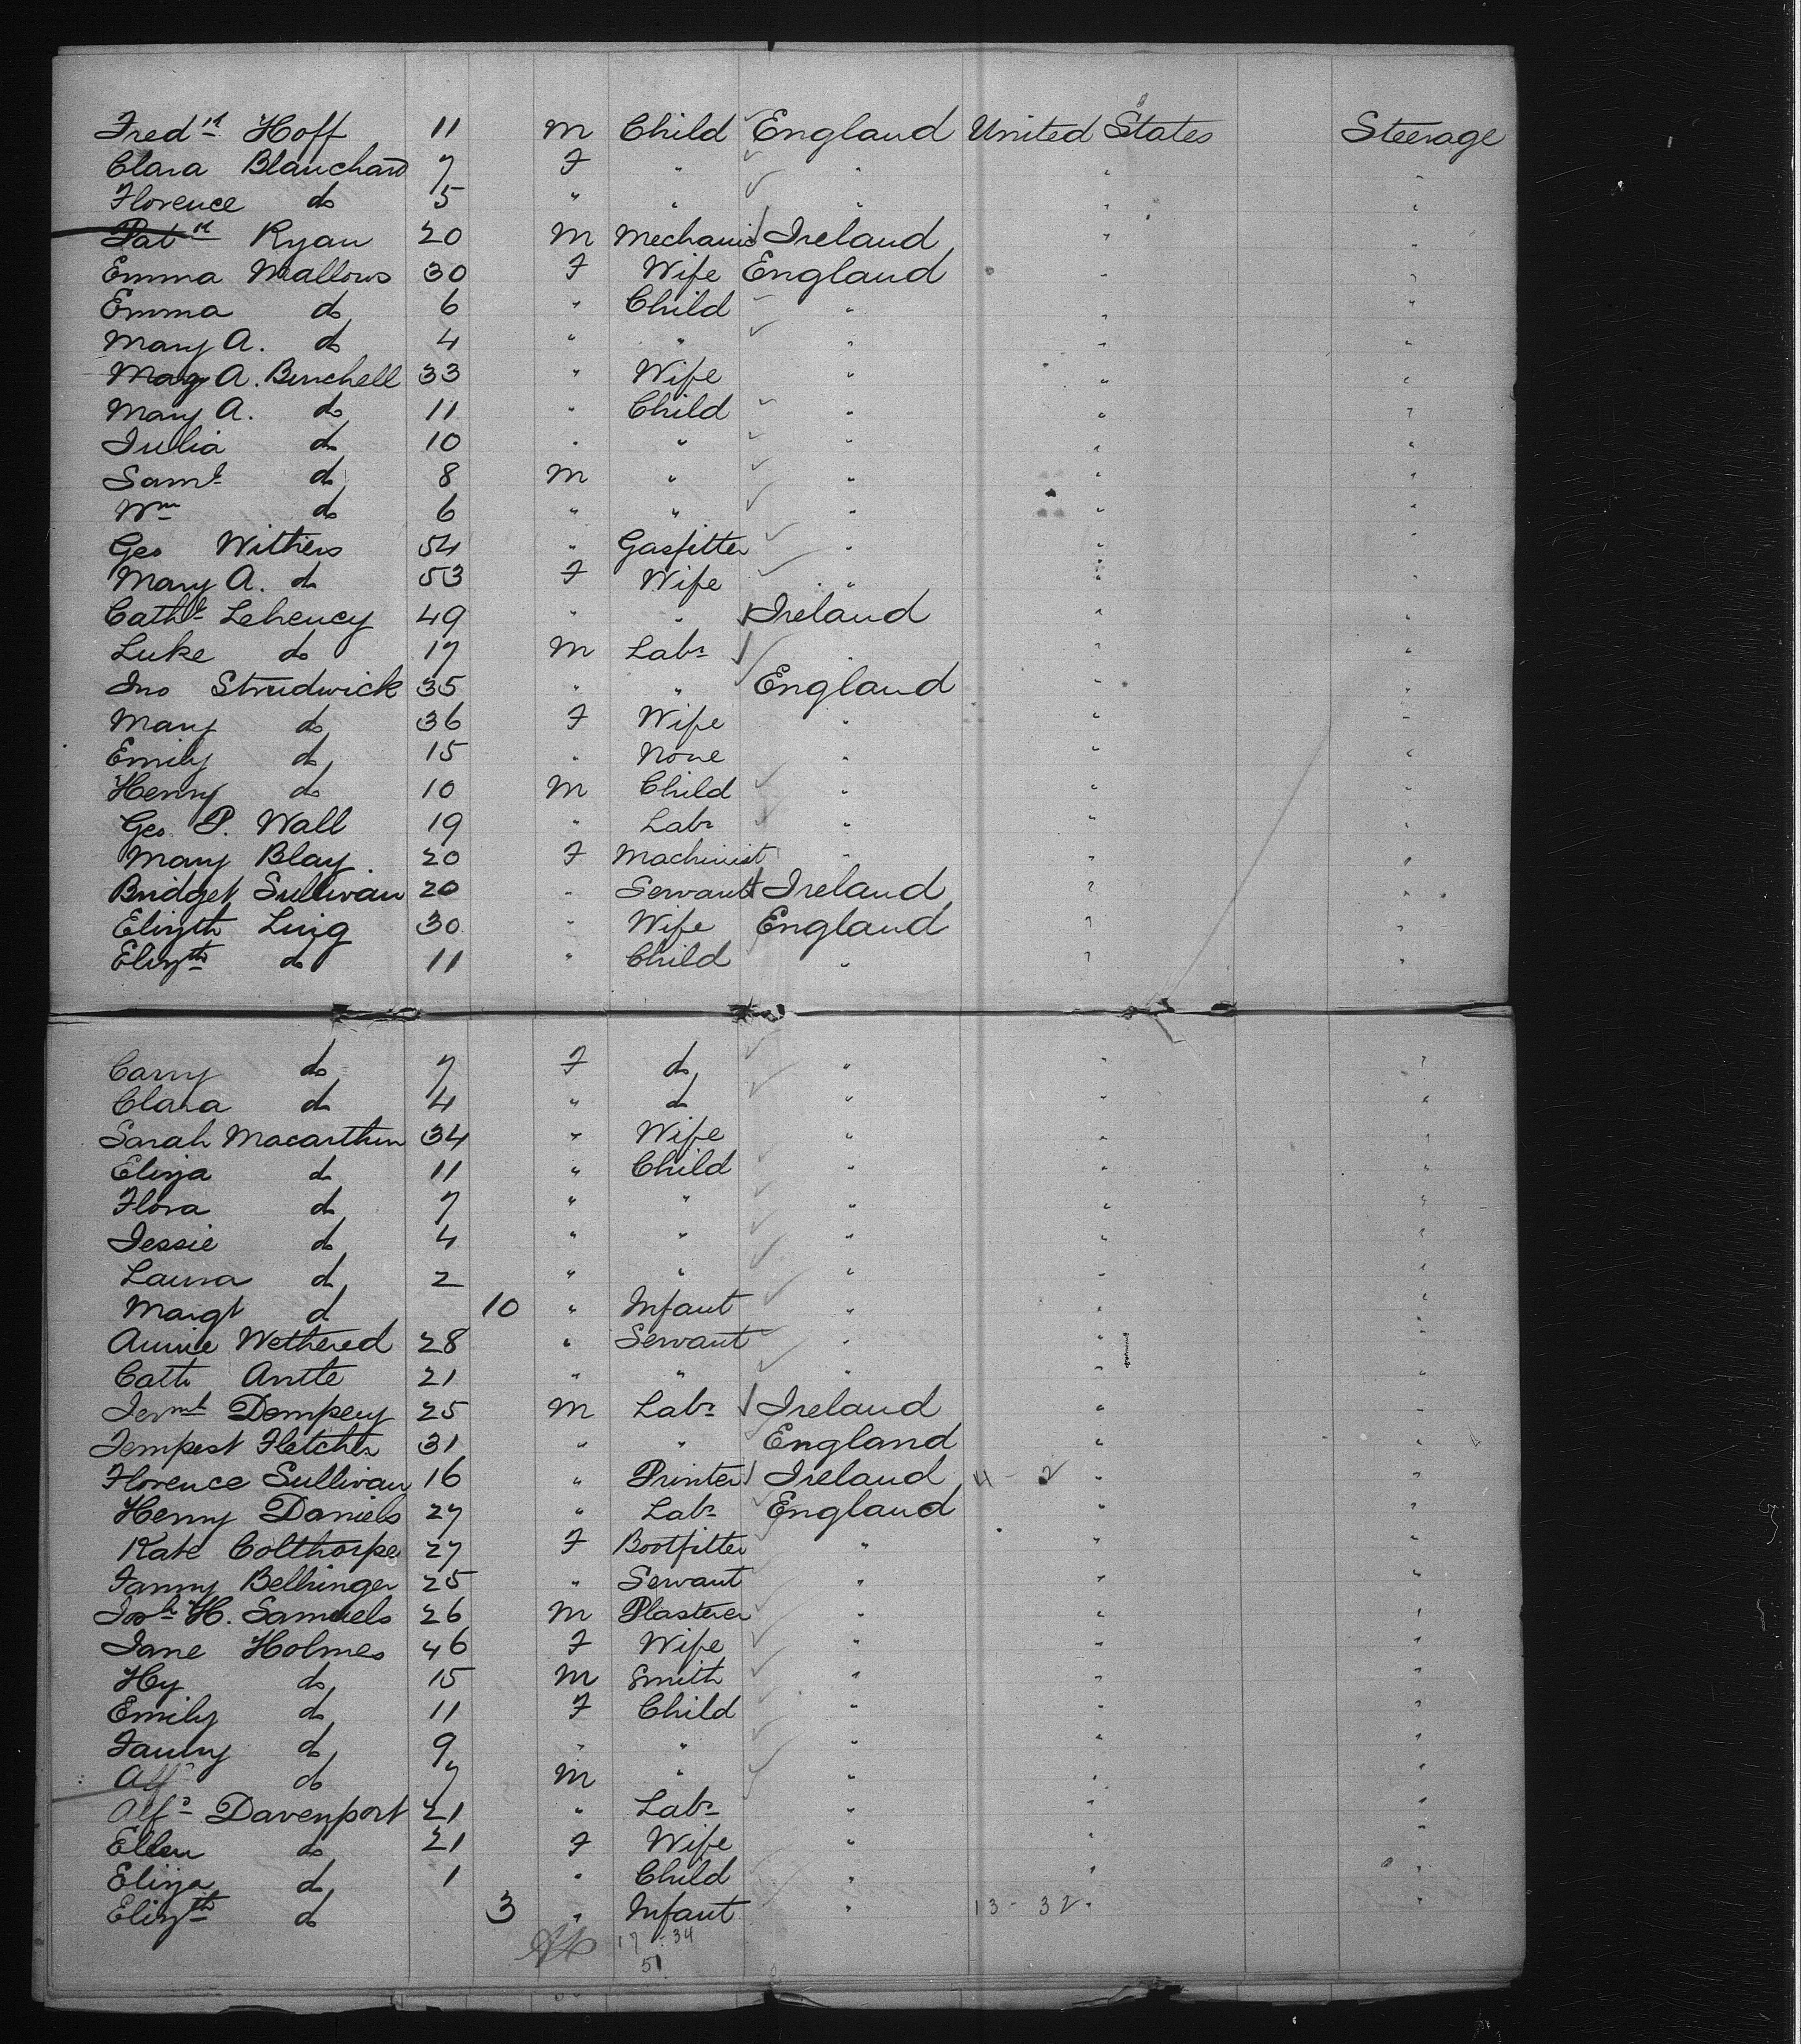 Fredk Hoff 11 M Child England United States Steerage
Clara Blanchard 7 F " " " "
Florence do 5 " " " " "
Patk Ryan 20 M Mechanic Ireland " "
Emma Mallows 30 F Wife England " "
Emma do 6 " Child " " "
Mary A. do 4 " " " " "
Mary A. Burchell 33 " Wife " " "
Mary A. do 11 " Child " " "
Julia do 10 " " " " "
Saml do 8 M " " " "
Wm do 6 " " " " "
Geo Withers 54 " Gasfitter " " "
Mary A. do 53 F Wife " " "
Cathe Leheney 49 " " Ireland " "
Luke do 17 M Labr " " "
Jno Strudwick 35 " " England " "
Mary do 36 F Wife " " "
Emily do 15 " None " " "
Henry do 10 M Child " " "
Geo. P. Wall 19 " Labr " " "
Mary Blay 20 F Machinist " " "
Bridget Sullivan 20 " Servant Ireland " "
Elizth Luig 30 " Wife England " "
Elizth do 11 " Child " " "
Carry do 7 F do " " "
Clara do 4 " do " " "
Sarah Macarthur 34 " Wife " " "
Eliza do 11 " Child " " "
Flora do 7 " " " " "
Jessie do 4 " " " " "
Laura do 2 " " " " "
Margt do 10 " Infant " " "
Annie Wethered 28 " Servant " " "
Cath 21 " " " " "
Dempsey 25 M Labr Ireland " "
Tempest Fletcher 31 " " England " "
Florence Sullivan 16 " Printer Ireland " "
Henry Daniels 27 " Labr England " "
Kate Colthorpe 27 F Bootfitter " " "
Fanny Bellringer 25 " Servant " " "
Josh H. Samuels 26 M Plasterer " " "
Jane Holmes 46 F Wife " " "
Hy do 15 M Smith " " "
Emily do 11 F Child " " "
Fanny do 9 " " " " "
Alfd do 7 M " " " "
Alfd Davenport 21 " Labr " " "
Ellen do 21 F Wife " " "
Eliza do 1 " Child " " "
Elizth do 3 " Infant " 13 - 32 " "
17 - 34
51